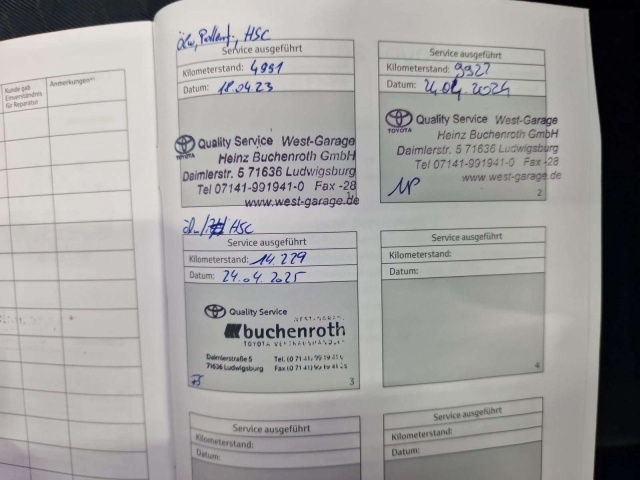 Kunde gab
Einverständnis
für Reparatur
Anmerkungen
Ölw, Pollenf., HSC
Service ausgeführt
Kilometerstand: 4991
Datum: 18.04.23
TOYOTA
Quality Service West-Garage
Heinz Buchenroth GmbH
Daimlerstr. 5 71636 Ludwigsburg
Tel 07141-991941-0 Fax -28
www.west-garage.de
1
Service ausgeführt
Kilometerstand: 9927
Datum: 24.04.2024
TOYOTA
Quality Service West-Garage
Heinz Buchenroth GmbH
Daimlerstr. 5 71636 Ludwigsburg
Tel 07141-991941-0 Fax -28
www.west-garage.de
2
HSC
Service ausgeführt
Kilometerstand: 14.229
Datum: 24.04.2025
Quality Service
buchenroth
TOYOTA VERTRAGSHÄNDLER
Daimlerstraße 5
71636 Ludwigsburg
3
Service ausgeführt
Kilometerstand:
Datum:
4
Service ausgeführt
Kilometerstand:
Datum:
Service ausgeführt
Kilometerstand:
Datum: